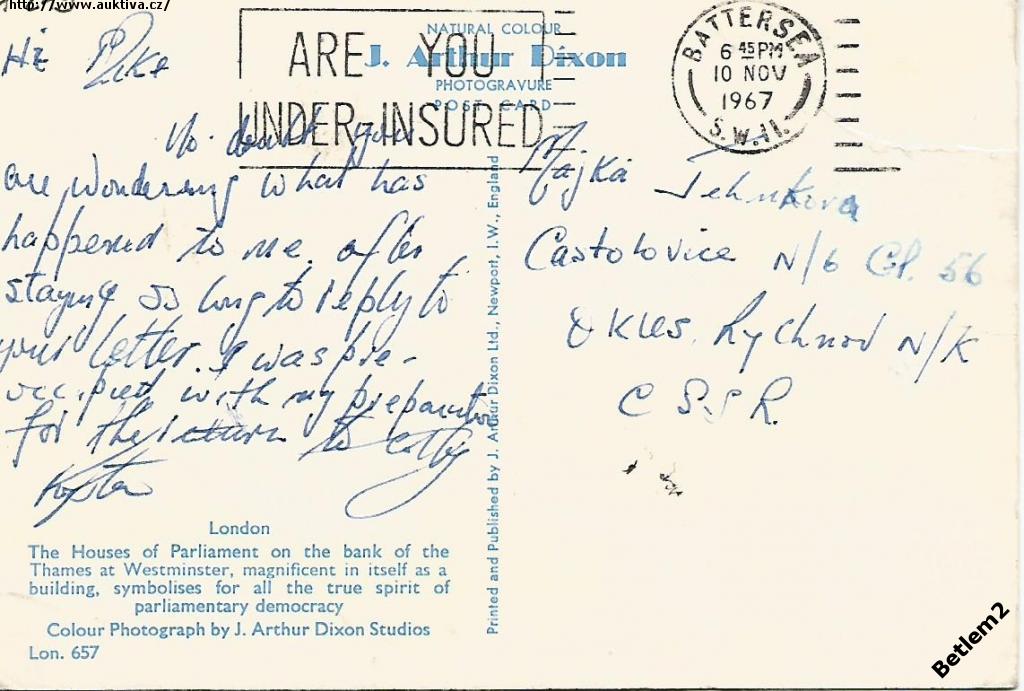 http://www.auktiva.cz/
NATURAL COLOUR
J. Arthur Dixon
PHOTOGRAVURE
POST CARD
ARE YOU
UNDER-INSURED
BATTERSEA
6 45 PM
10 NOV
1967
S.W.11.
Hi
No doubt you
are wondering what has
happened to me, after
staying so long to reply to
your letter. I was pre-
occupied with my preparation
for the return to
London
The Houses of Parliament on the bank of the
Thames at Westminster, magnificent in itself as a
building, symbolises for all the true spirit of
parliamentary democracy
Colour Photograph by J. Arthur Dixon Studios
Lon. 657
Printed and Published by J. Arthur Dixon Ltd., Newport, I.W., England
Majka
Castolovice N/6 Cp. 56
OKRES. Rychnov N/K
C S.S R.
Betlem2